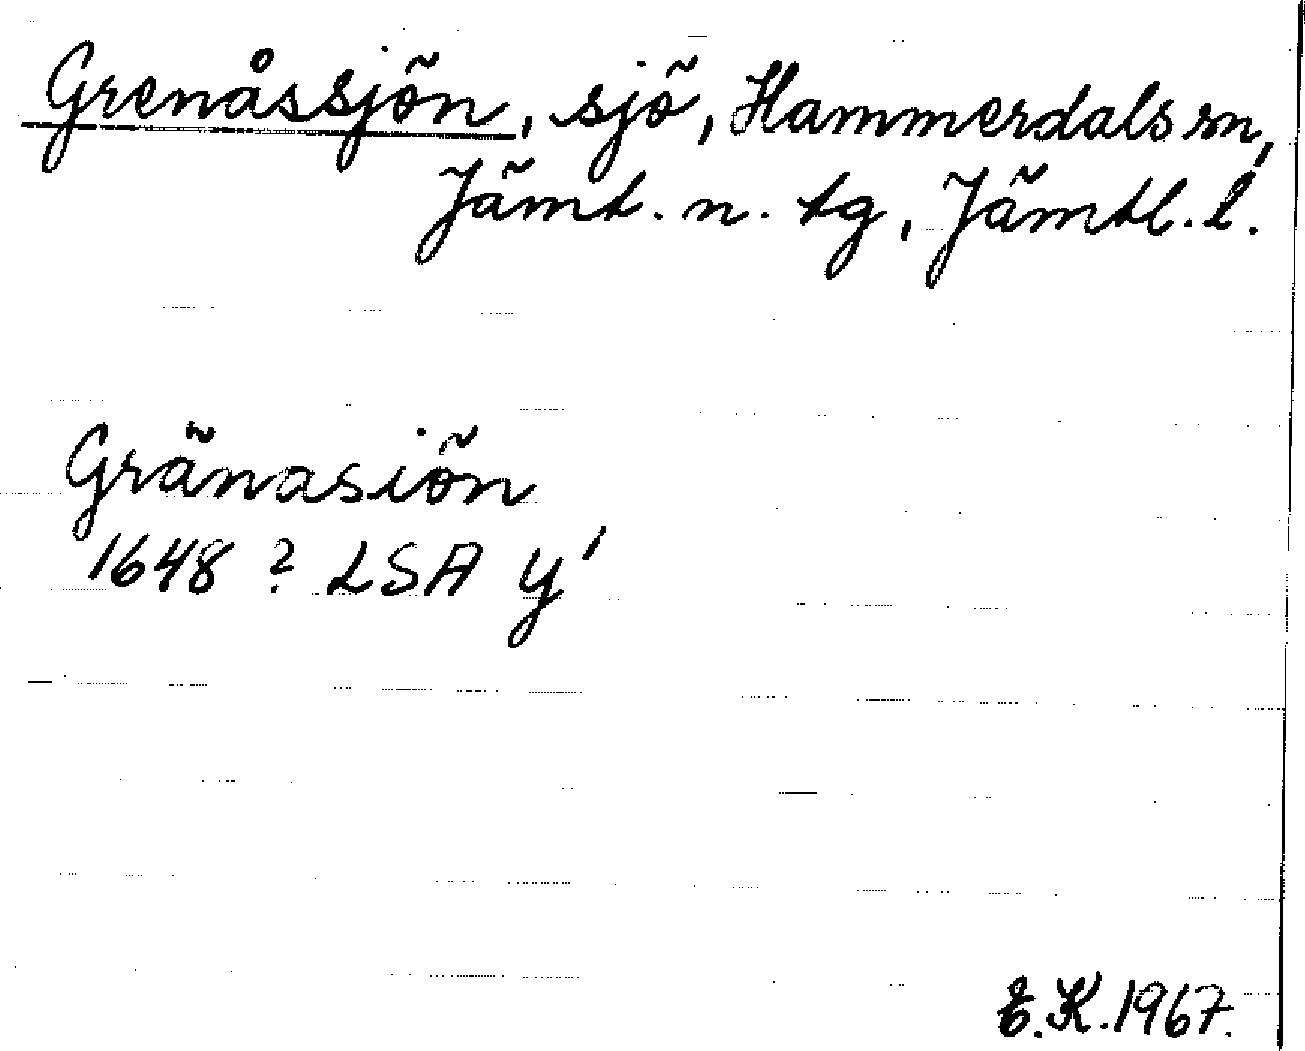 Grenåssjön, sjö, Hammerdals sn,
Jämt. n. tg, Jämtl. l.
Gränasiön
1648 ? LSA Y 1
E.K. 1967.